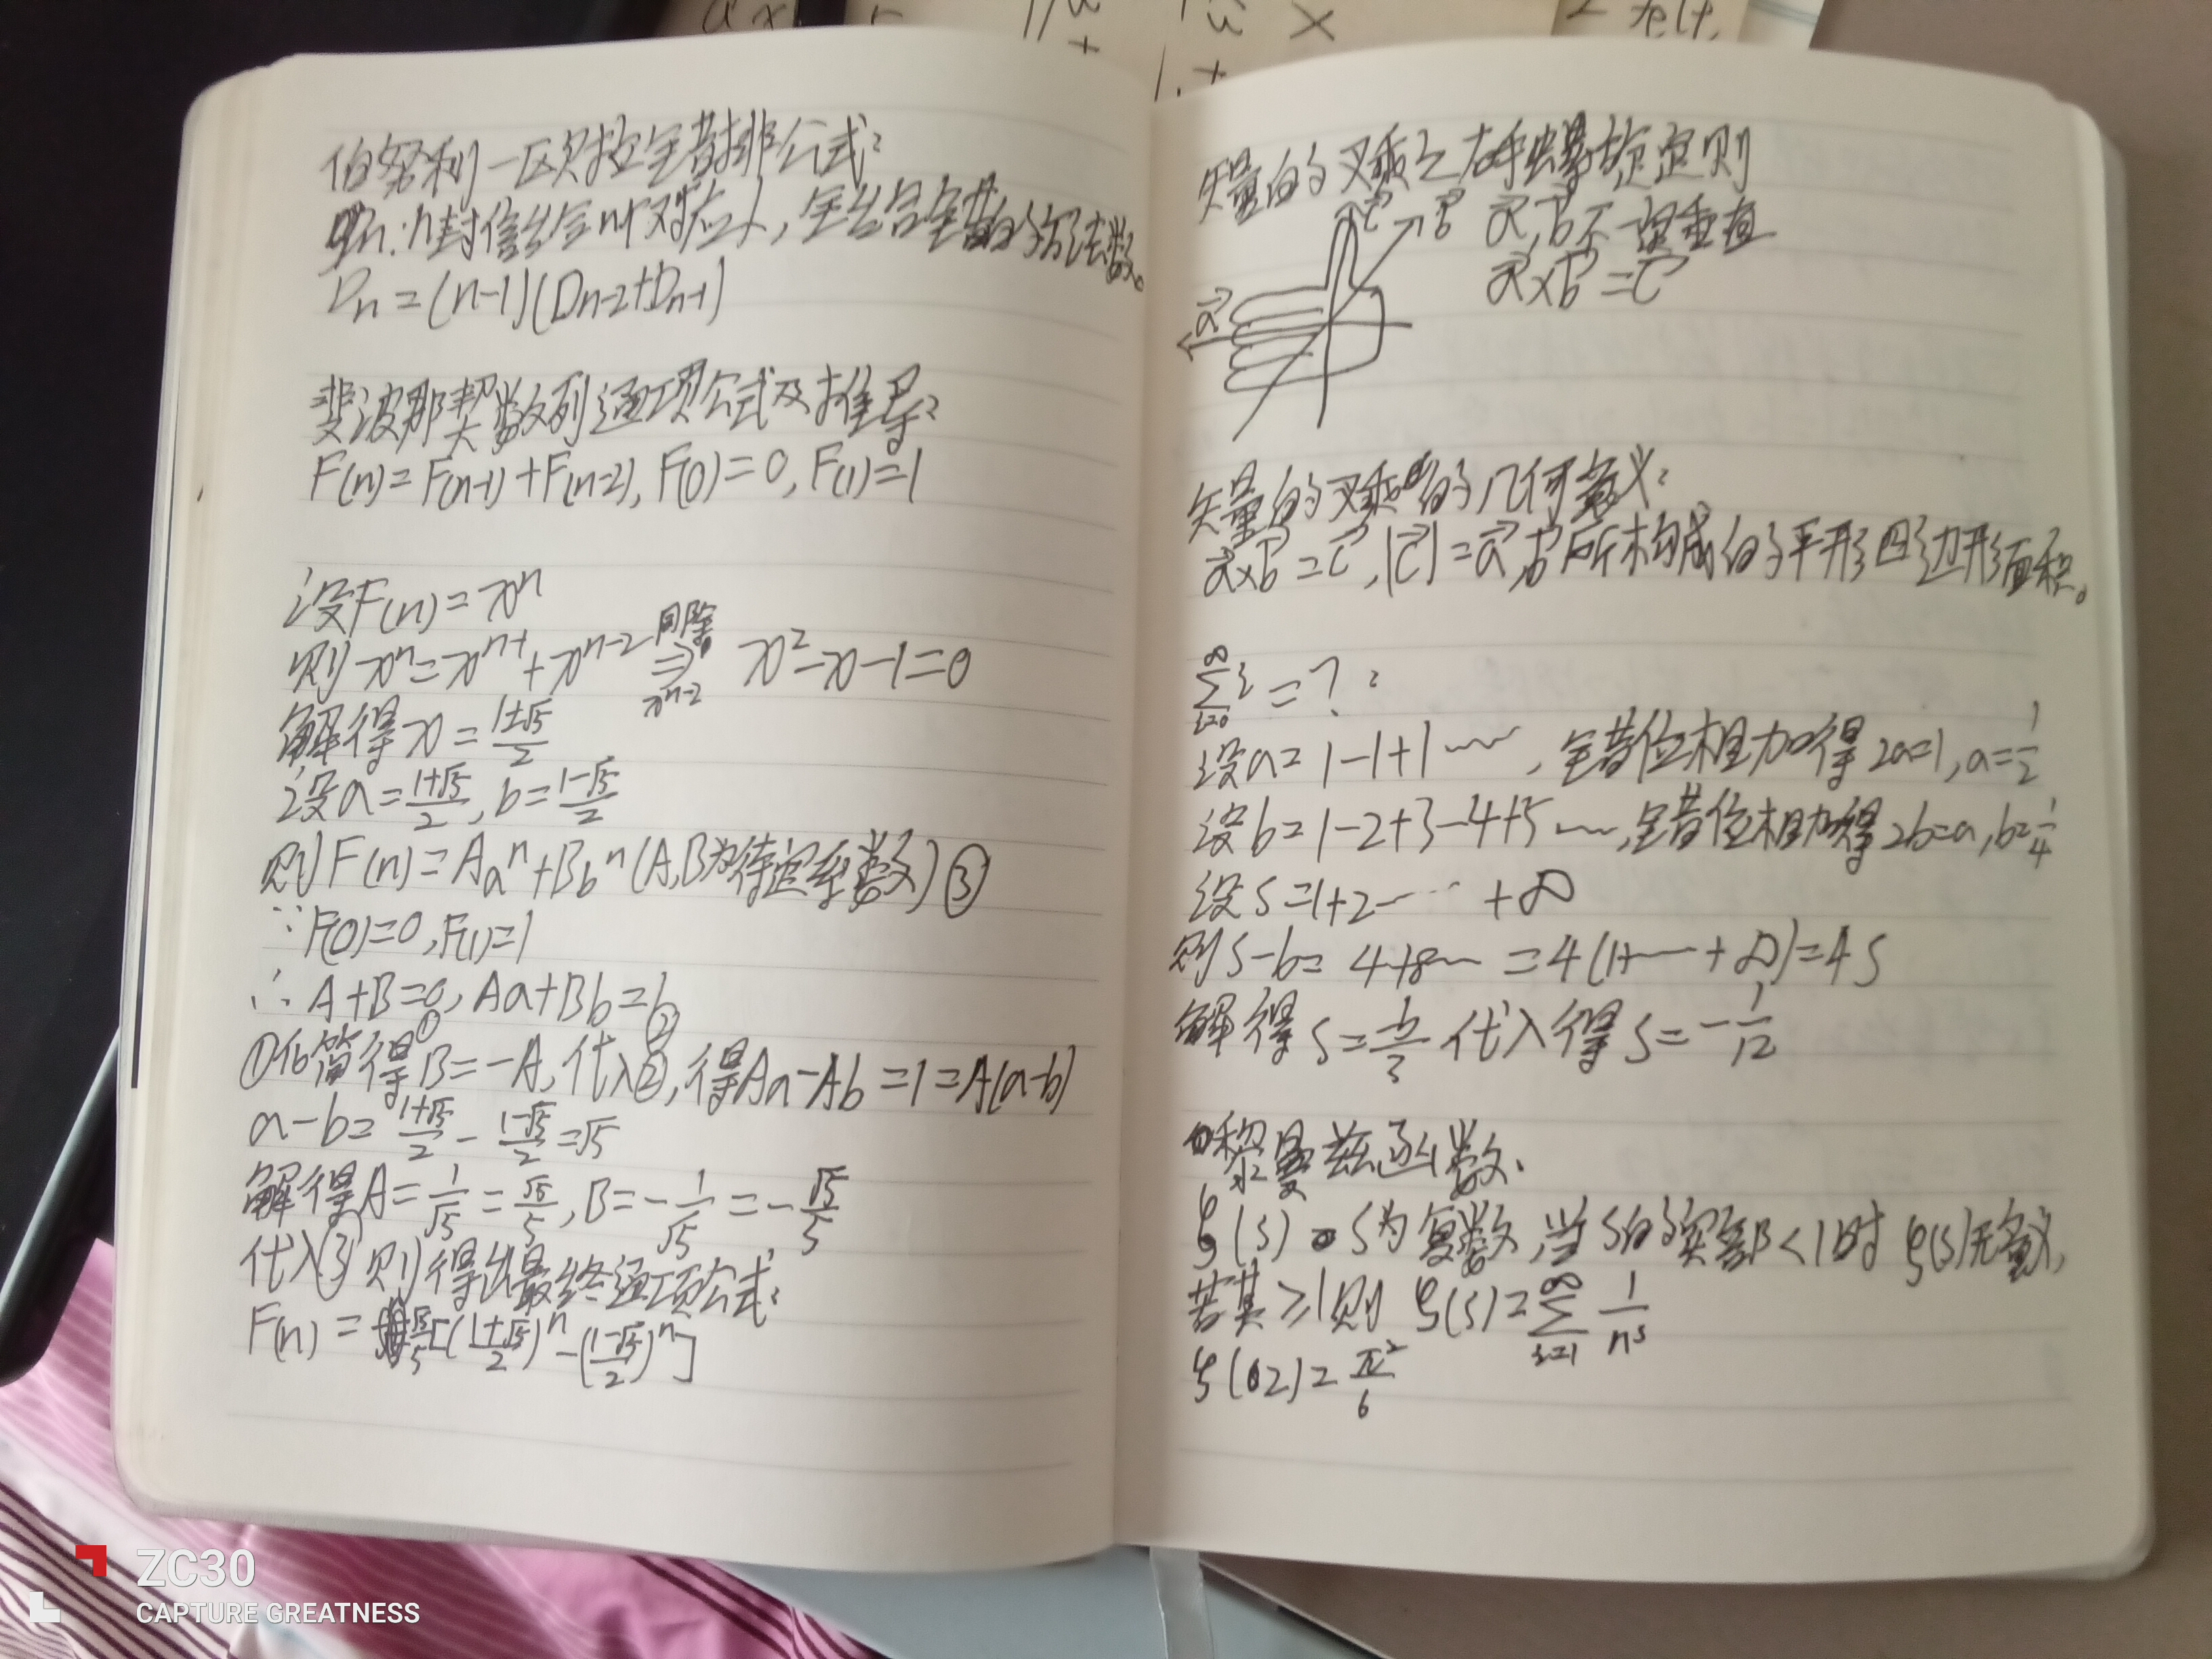 伯努利-欧拉错排公式:
Dn:n封信装给n个对应人,全装错的方法数。
Dn=(n-1)(Dn-2+Dn-1)
斐波那契数列通项公式及推导:
F(n)=F(n-1)+F(n-2), F(0)=0, F(1)=1
设F(n)=xⁿ
则xⁿ=xⁿ⁻¹+xⁿ⁻² 同除xⁿ⁻² ⇒ x²-x-1=0
解得x=(1±√5)/2
设a=(1+√5)/2, b=(1-√5)/2
则F(n)=Aaⁿ+Bbⁿ(A,B为待定系数)③
∵F(0)=0,F(1)=1
∴A+B=0①, Aa+Bb=b②
①化简得B=-A,代入②,得Aa-Ab=1=A(a-b)
a-b=(1+√5)/2-(1-√5)/2=√5
解得A=1/√5=√5/5, B=-1/√5=-√5/5
代入③则得出最终通项公式:
F(n)=√5/5[((1+√5)/2)ⁿ-((1-√5)/2)ⁿ]
矢量的叉乘之右手螺旋定则
c b a,b不一定垂直
a a×b=c
矢量的叉乘的几何意义:
a×b=c,|c|=a,b所构成的平行四边形面积。
∞∑i=0 i=?:
设a=1-1+1……,错位相加得2a=1,a=1/2
设b=1-2+3-4+5……,错位相加得2b=a,b=1/4
设S=1+2……+∞
则S-b=4+8……=4(1+……+∞)=4S
解得S=-b/3代入得S=-1/12
黎曼兹函数:
ζ(s) s为复数,当s的实部<1时ζ(s)无意义,
若其≥1则ζ(s)=∞∑i=1 1/nˢ
ζ(2)=π²/6
ZC30
CAPTURE GREATNESS